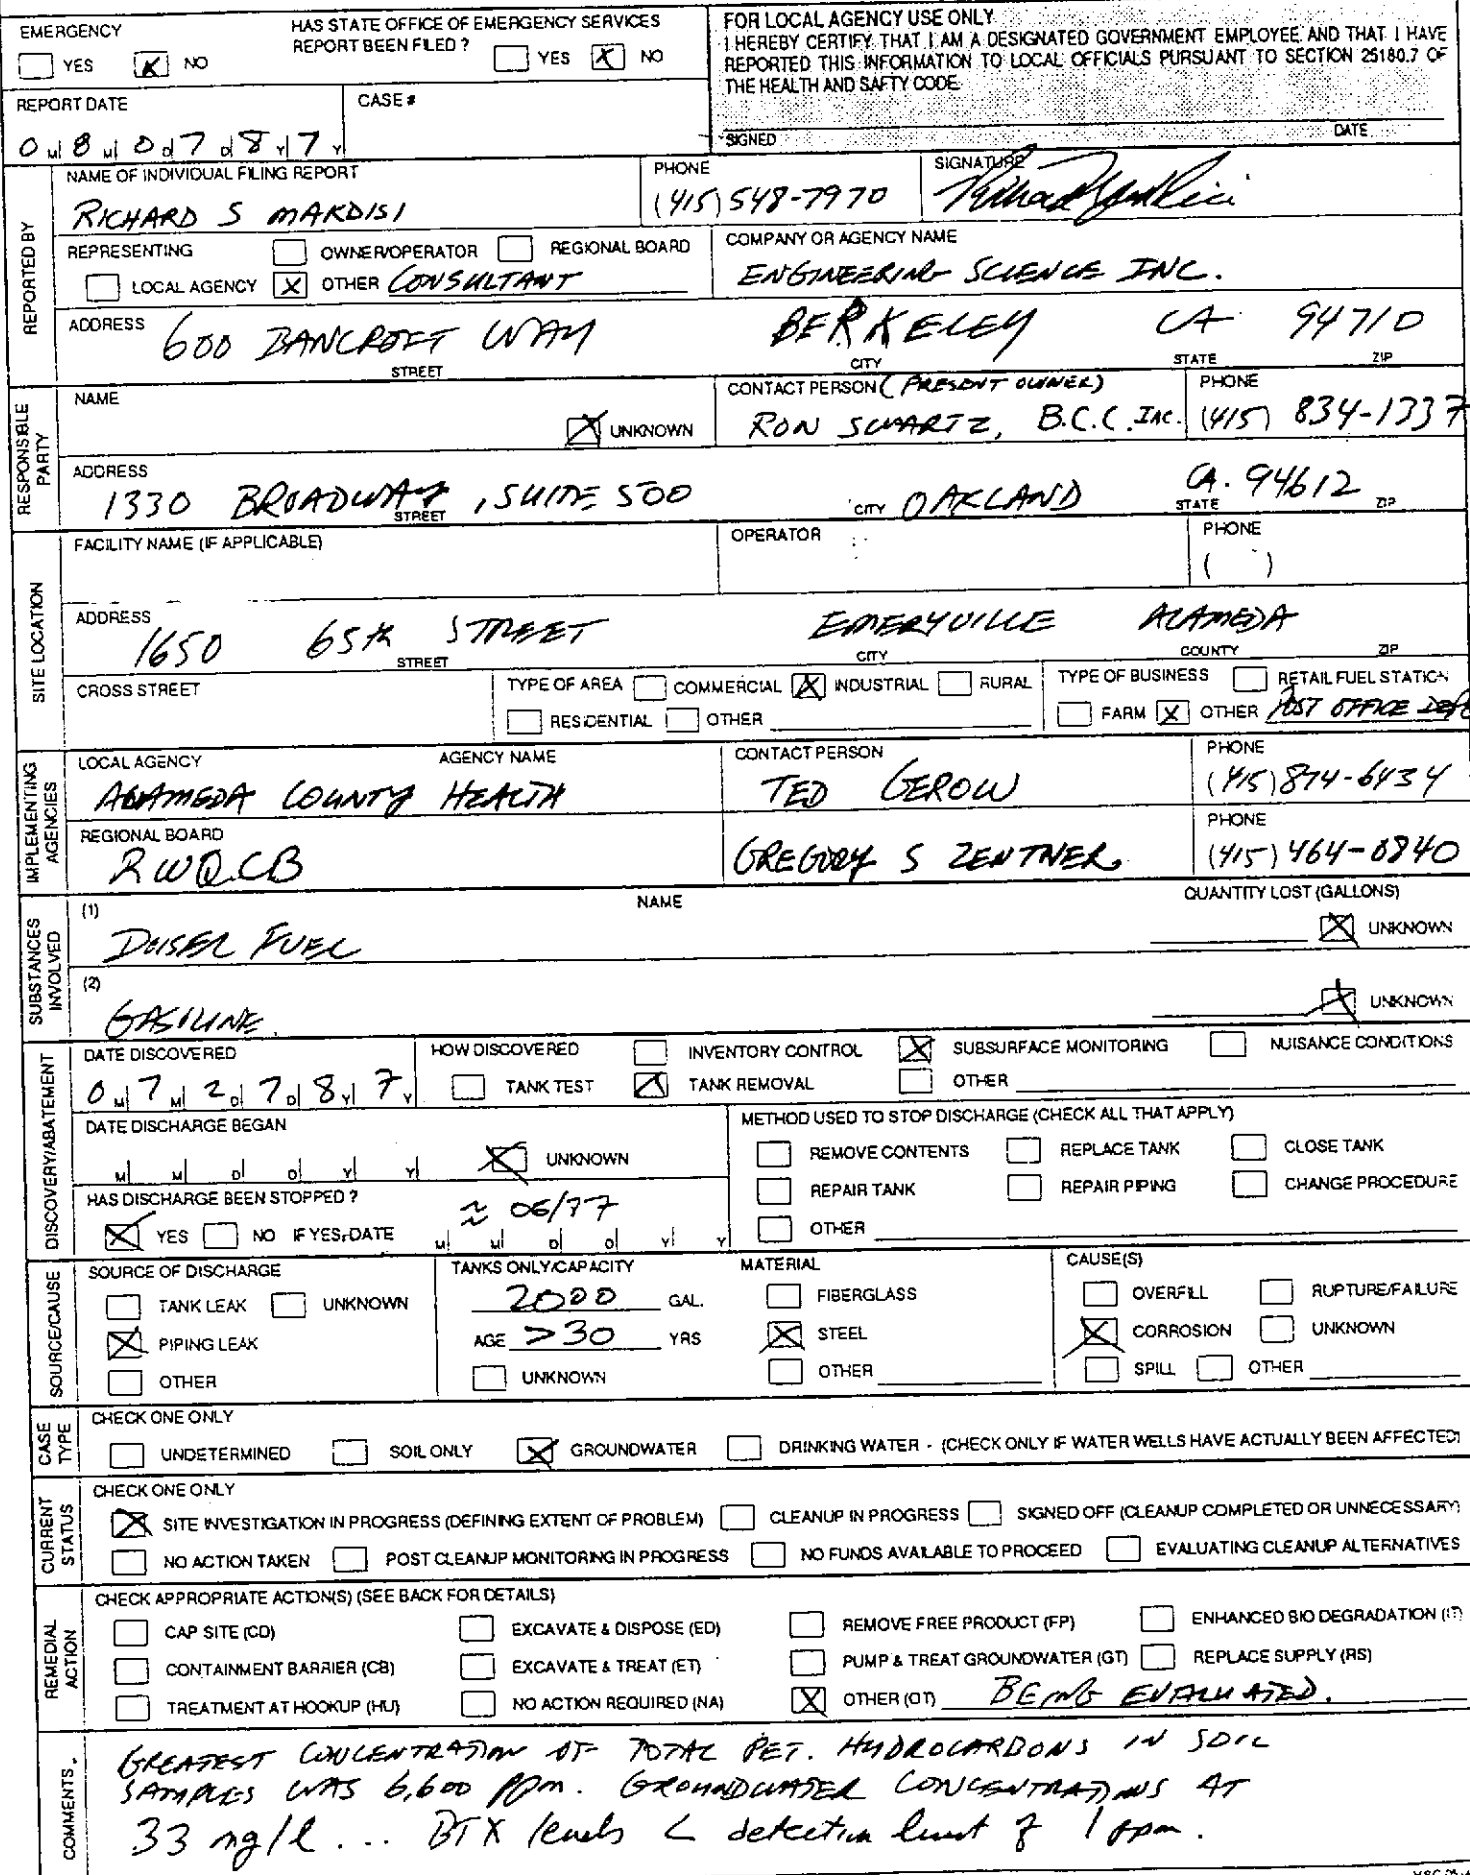 EMERGENCY
YES [X] NO
HAS STATE OFFICE OF EMERGENCY SERVICES
REPORT BEEN FILED ? YES [X] NO
FOR LOCAL AGENCY USE ONLY
I HEREBY CERTIFY THAT I AM A DESIGNATED GOVERNMENT EMPLOYEE AND THAT I HAVE
REPORTED THIS INFORMATION TO LOCAL OFFICIALS PURSUANT TO SECTION 25180.7 OF
THE HEALTH AND SAFTY CODE
SIGNED DATE
REPORT DATE
0 M 8 M 0 D 7 D 8 Y 7 Y
CASE #
REPORTED BY
NAME OF INDIVIDUAL FILING REPORT
RICHARD S MAKDISI
PHONE
(415) 548-7970
SIGNATURE
REPRESENTING OWNER/OPERATOR REGIONAL BOARD
LOCAL AGENCY [X] OTHER CONSULTANT
COMPANY OR AGENCY NAME
ENGINEERING SCIENCE INC.
ADDRESS 600 BANCROFT WAY BERKELEY CA 94710
STREET CITY STATE ZIP
RESPONSIBLE PARTY
NAME
[X] UNKNOWN
CONTACT PERSON (PRESENT OWNER)
RON SWARTZ, B.C.C. INC.
PHONE
(415) 834-1337
ADDRESS
1330 BROADWAY, SUITE 500 OAKLAND CA. 94612
STREET CITY STATE ZIP
SITE LOCATION
FACILITY NAME (IF APPLICABLE)
OPERATOR
PHONE
( )
ADDRESS
1650 65th STREET EMERYVILLE ALAMEDA
STREET CITY COUNTY ZIP
CROSS STREET
TYPE OF AREA COMMERCIAL [X] INDUSTRIAL RURAL
RESIDENTIAL OTHER
TYPE OF BUSINESS RETAIL FUEL STATION
FARM [X] OTHER POST OFFICE
IMPLEMENTING AGENCIES
LOCAL AGENCY AGENCY NAME
ALAMEDA COUNTY HEALTH
CONTACT PERSON
TED GEROW
PHONE
(415) 874-6434
REGIONAL BOARD
RWQCB
GREGORY S ZENTNER
PHONE
(415) 464-0840
SUBSTANCES INVOLVED
NAME QUANTITY LOST (GALLONS)
(1) DEISEL FUEL [X] UNKNOWN
(2) GASILINE [X] UNKNOWN
DISCOVERY/ABATEMENT
DATE DISCOVERED
0 M 7 M 2 D 7 D 8 Y 7 Y
HOW DISCOVERED INVENTORY CONTROL [X] SUBSURFACE MONITORING NUISANCE CONDITIONS
TANK TEST [X] TANK REMOVAL OTHER
DATE DISCHARGE BEGAN
M M D D Y Y [X] UNKNOWN
METHOD USED TO STOP DISCHARGE (CHECK ALL THAT APPLY)
REMOVE CONTENTS REPLACE TANK CLOSE TANK
REPAIR TANK REPAIR PIPING CHANGE PROCEDURE
OTHER
HAS DISCHARGE BEEN STOPPED ?
[X] YES NO IF YES, DATE ≈ 06/77
M M D D Y Y
SOURCE/CAUSE
SOURCE OF DISCHARGE
TANK LEAK UNKNOWN
[X] PIPING LEAK
OTHER
TANKS ONLY/CAPACITY
2000 GAL.
AGE >30 YRS
UNKNOWN
MATERIAL
FIBERGLASS
[X] STEEL
OTHER
CAUSE(S)
OVERFILL RUPTURE/FAILURE
[X] CORROSION UNKNOWN
SPILL OTHER
CASE TYPE
CHECK ONE ONLY
UNDETERMINED SOIL ONLY [X] GROUNDWATER DRINKING WATER - (CHECK ONLY IF WATER WELLS HAVE ACTUALLY BEEN AFFECTED)
CURRENT STATUS
CHECK ONE ONLY
[X] SITE INVESTIGATION IN PROGRESS (DEFINING EXTENT OF PROBLEM) CLEANUP IN PROGRESS SIGNED OFF (CLEANUP COMPLETED OR UNNECESSARY)
NO ACTION TAKEN POST CLEANUP MONITORING IN PROGRESS NO FUNDS AVAILABLE TO PROCEED EVALUATING CLEANUP ALTERNATIVES
REMEDIAL ACTION
CHECK APPROPRIATE ACTION(S) (SEE BACK FOR DETAILS)
CAP SITE (CD) EXCAVATE & DISPOSE (ED) REMOVE FREE PRODUCT (FP) ENHANCED BIO DEGRADATION (IT)
CONTAINMENT BARRIER (CB) EXCAVATE & TREAT (ET) PUMP & TREAT GROUNDWATER (GT) REPLACE SUPPLY (RS)
TREATMENT AT HOOKUP (HU) NO ACTION REQUIRED (NA) [X] OTHER (OT) BEING EVALUATED.
COMMENTS
GREATEST CONCENTRATION OF TOTAL PET. HYDROCARBONS IN SOIL
SAMPLES WAS 6,600 ppm. GROUNDWATER CONCENTRATIONS AT
33 mg/l ... BTX levels < detection limit of 1 ppm.